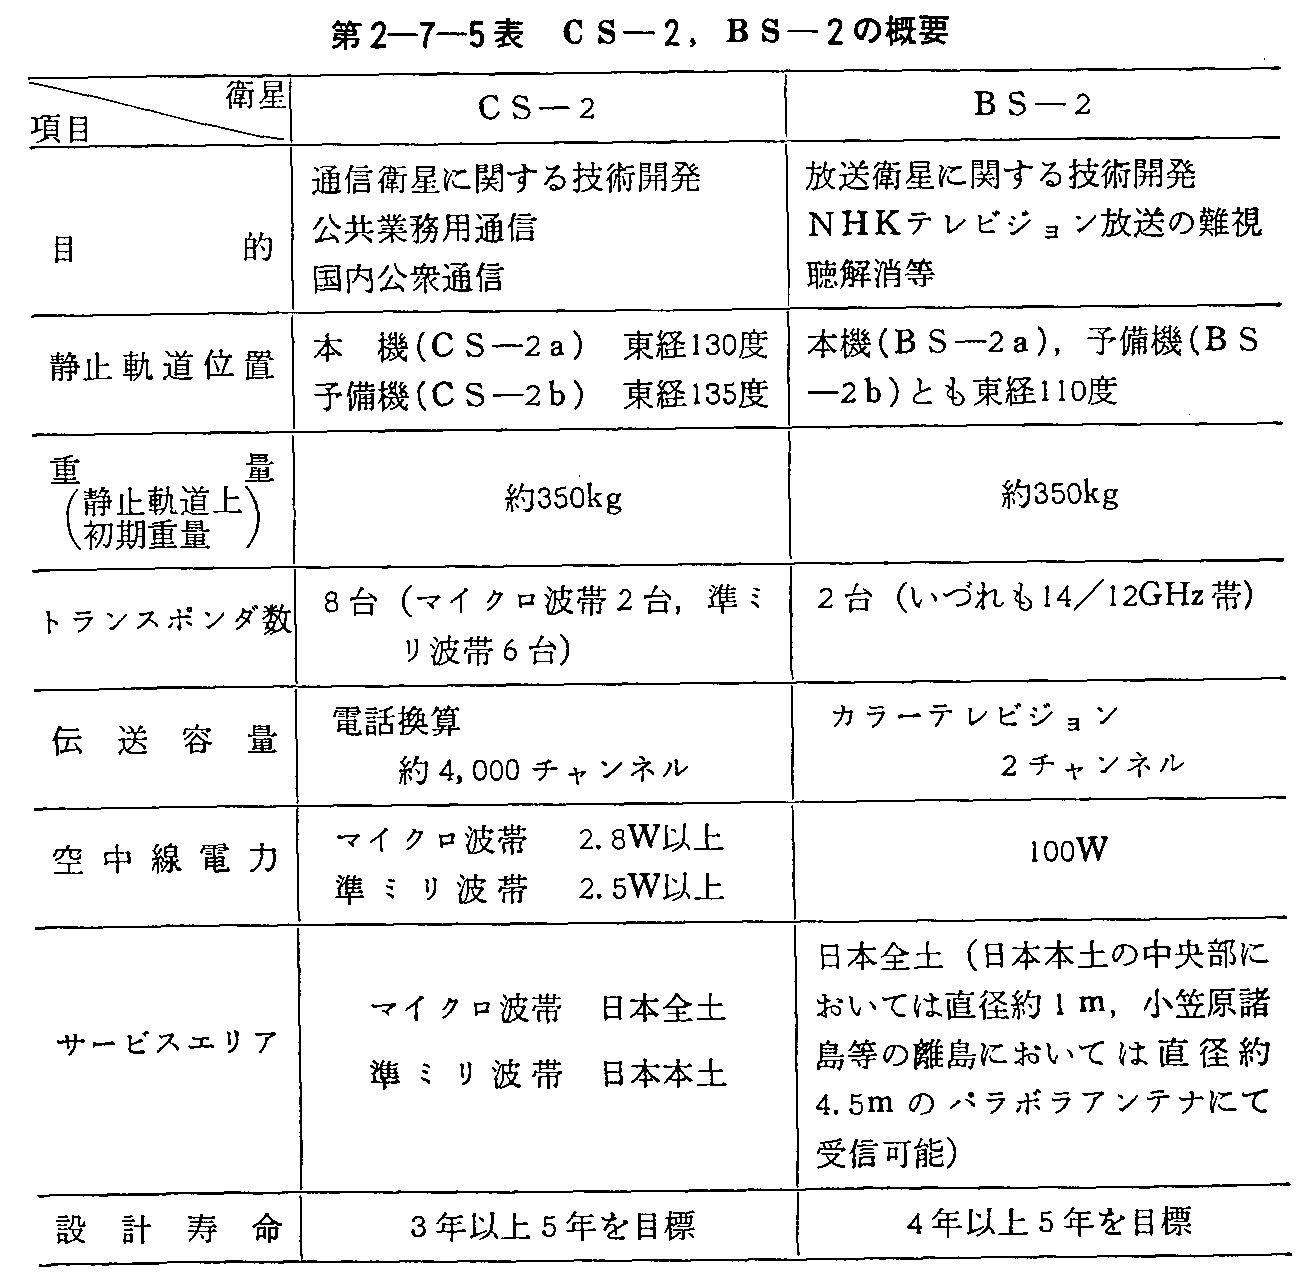 第2―7―5表　CS―2，BS―2の概要
衛星
項目
CS―2
BS―2
目的
通信衛星に関する技術開発
公共業務用通信
国内公衆通信
放送衛星に関する技術開発
NHKテレビジョン放送の難視
聴解消等
静止軌道位置
本　機(CS―2a)　東経130度
予備機(CS―2b)　東経135度
本機(BS―2a)，予備機(BS
―2b)とも東経110度
重量
(静止軌道上
初期重量)
約350kg
約350kg
トランスポンダ数
8台（マイクロ波帯2台，準ミ
リ波帯6台）
2台（いづれも14／12GHz帯）
伝送容量
電話換算
約4,000チャンネル
カラーテレビジョン
2チャンネル
空中線電力
マイクロ波帯　2.8W以上
準ミリ波帯　2.5W以上
100W
サービスエリア
マイクロ波帯　日本全土
準ミリ波帯　日本本土
日本全土（日本本土の中央部に
おいては直径約1m，小笠原諸
島等の離島においては直径約
4.5mのパラボラアンテナにて
受信可能）
設計寿命
3年以上5年を目標
4年以上5年を目標